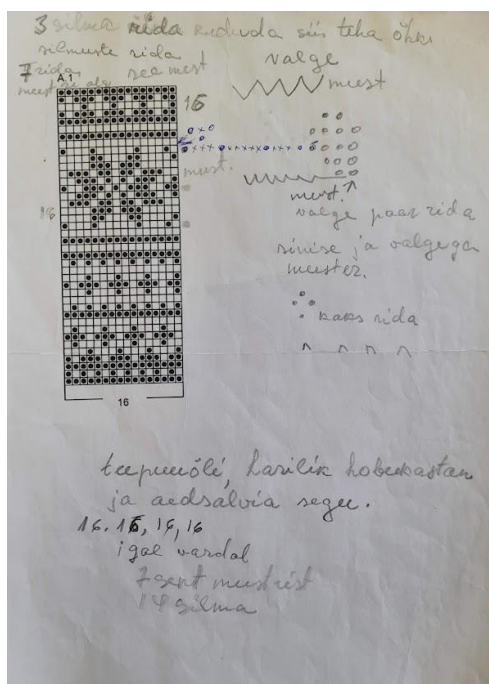 3 silma rida kududa siis teha õhk
silmuste rida
7 rida
seemest
valge
must
A.1
16
must.
16
must.
valge paar rida
sinise ja valgega
muster.
kaks rida
16
teepuuõli, harilik hobukastan
ja aedsalvia segu.
16. 16, 16, 16
igal vardal
7 sent mustrist
14 silma